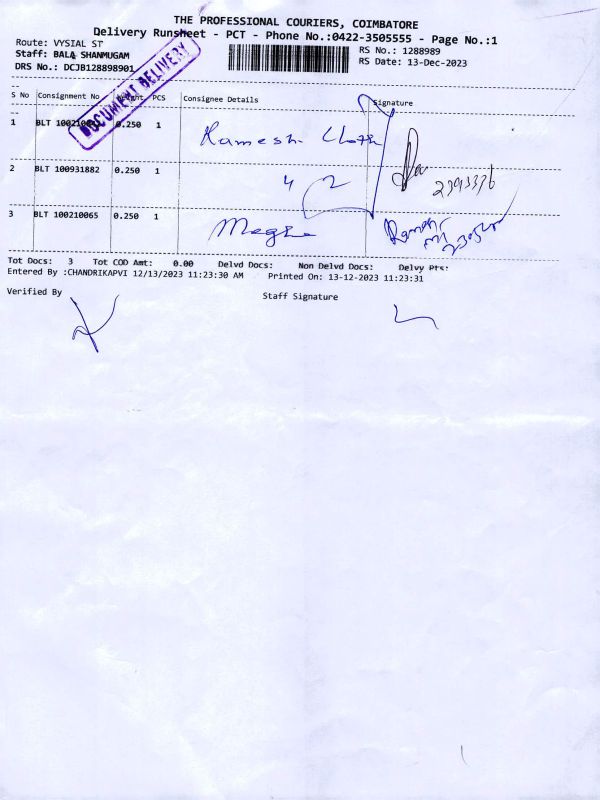 THE PROFESSIONAL COURIERS, COIMBATORE
Delivery Runsheet - PCT - Phone No.:0422-3505555 - Page No.:1
Route: VYSIAL ST
RS No.: 1288989
Staff: BALA SHANMUGAM
RS Date: 13-Dec-2023
DRS No.: DCJB128898901
DOCUMENT DELIVERY
S No Consignment No Weight PCS Consignee Details Signature
1 BLT 0.250 1 Ramesh Cloth
2 BLT 100931882 0.250 1 4 2
3 BLT 100210065 0.250 1
Tot Docs: 3 Tot COD Amt: 0.00 Delvd Docs: Non Delvd Docs: Delvy Pts:
Entered By :CHANDRIKAPVI 12/13/2023 11:23:30 AM Printed On: 13-12-2023 11:23:31
Verified By Staff Signature